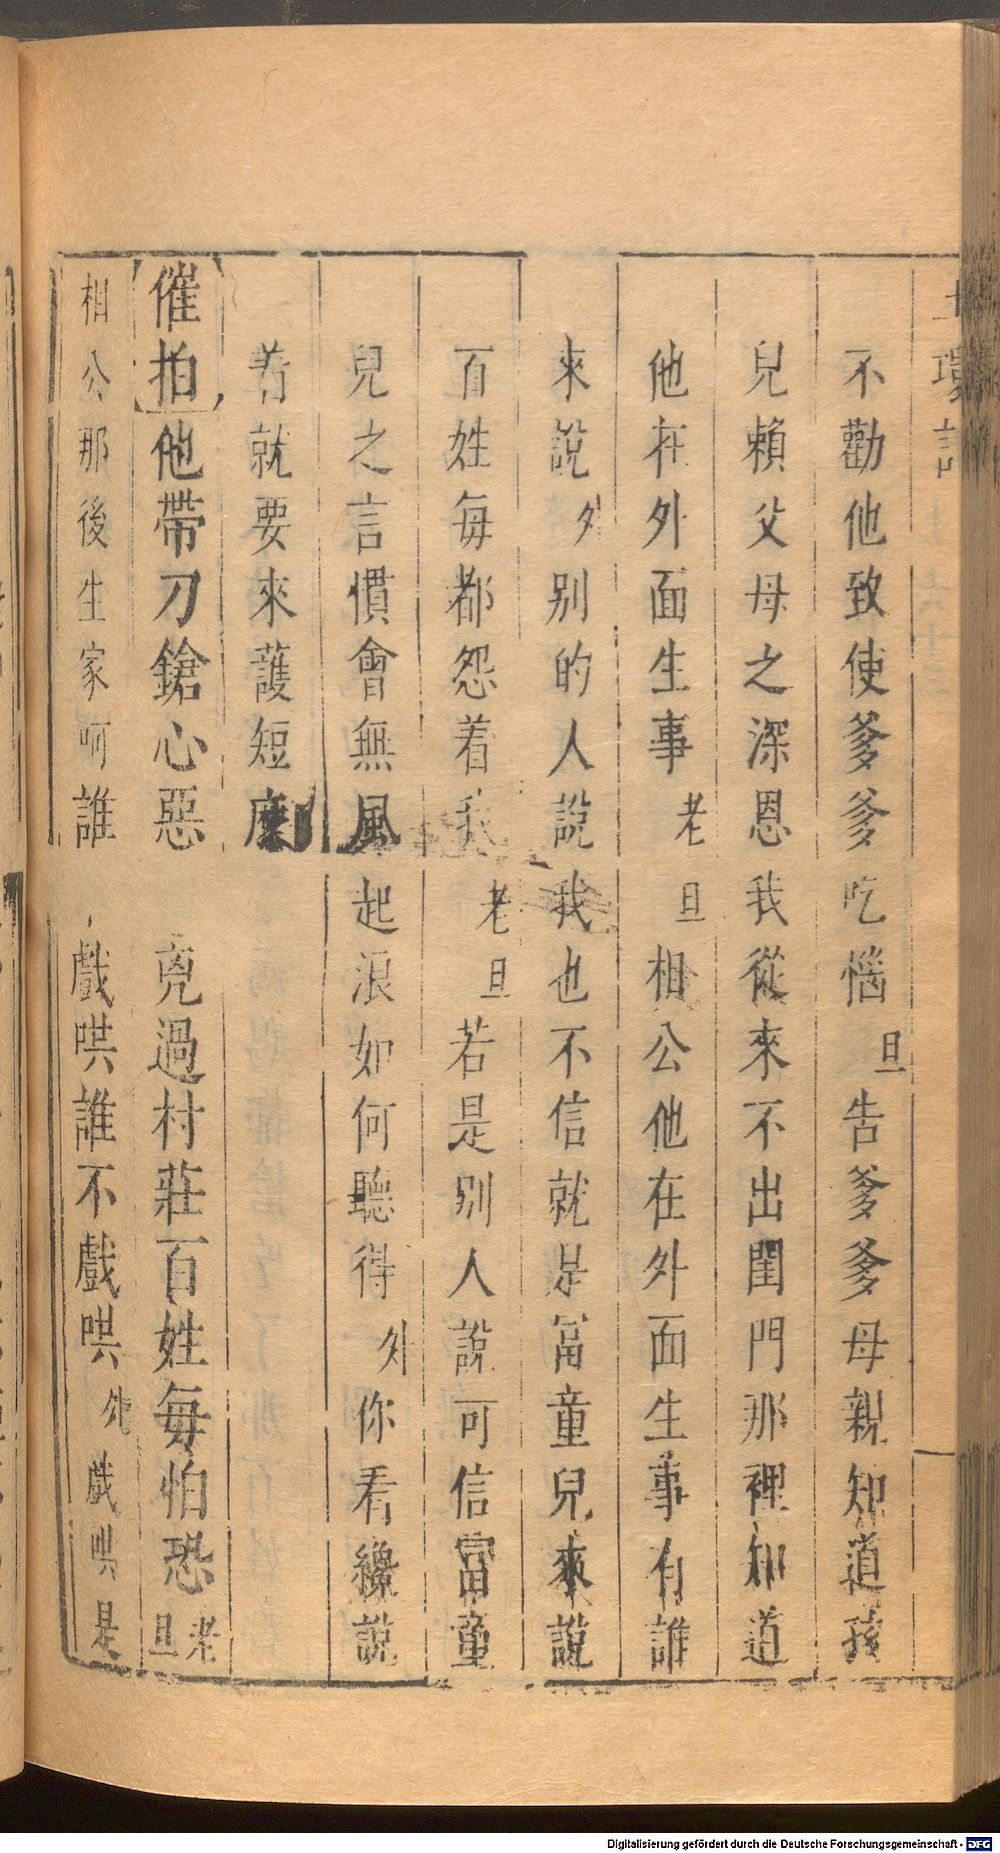 不勸他致使爹爹吃惱旦告爹爹母親知道孩
兒賴父母之深恩我從來不出閨門那裡知道
他在外面生事老旦相公他在外面生事有誰
來說外别的人說我也不信就是富童兒來說
百姓每都怨着我老旦若是别人說可信富童
兒之言慣會無風起浪如何聽得外你看纔說
着就要來護短麽
催拍他帶刀鎗心惡 過村莊百姓每怕恐老旦
相公那後生家呵誰 戲哄誰不戲哄外戲哄是
Digitalisierung gefördert durch die Deutsche Forschungsgemeinschaft - DFG